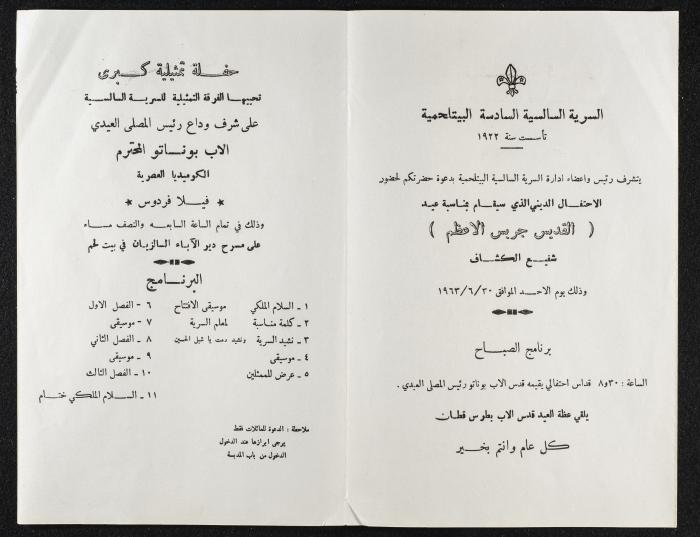 السرية السالسية السادسة البيتلحمية
تأسست سنة ١٩٢٢
يتشرف رئيس واعضاء ادارة السرية السالسية البيتلحمية بدعوة حضرتكم لحضور
الاحتفال الديني الذي سيقام بمناسبة عيد
( القديس جريس الاعظم )
شفيع الكشاف
وذلك يوم الاحد الموافق ١٩٦٣/٦/٣٠
برنامج الصباح
الساعة : ٨و٣٠ قداس احتفالي يقيمه قدس الاب بوناتو رئيس المصلى العيدي .
يلقي عظة العيد قدس الاب بطرس قطان
كل عام وانتم بخير
حفلة تمثيلية كبرى
تحييها الفرقة التمثيلية للسرية السالسية
على شرف وداع رئيس المصلى العيدي
الاب بوناتو المحترم
الكوميديا العصرية
* فيلا فردوس *
وذلك في تمام الساعة السابعه والنصف مساء
على مسرح دير الآباء السالزيان في بيت لحم
البرنامج
١ - السلام الملكي موسيقى الافتتاح
٢ - كلمة مناسبة لمعلم السرية
٣ - نشيد السرية ونشيد دمت يا شبل الحسين
٤ - موسيقى
٥ - عرض للممثلين
٦ - الفصل الاول
٧ - موسيقى
٨ - الفصل الثاني
٩ - موسيقى
١٠ - الفصل الثالث
١١ - السلام الملكي ختام
ملاحظة : الدعوة للعائلات فقط
يرجى ابرازها عند الدخول
الدخول من باب المدبسة